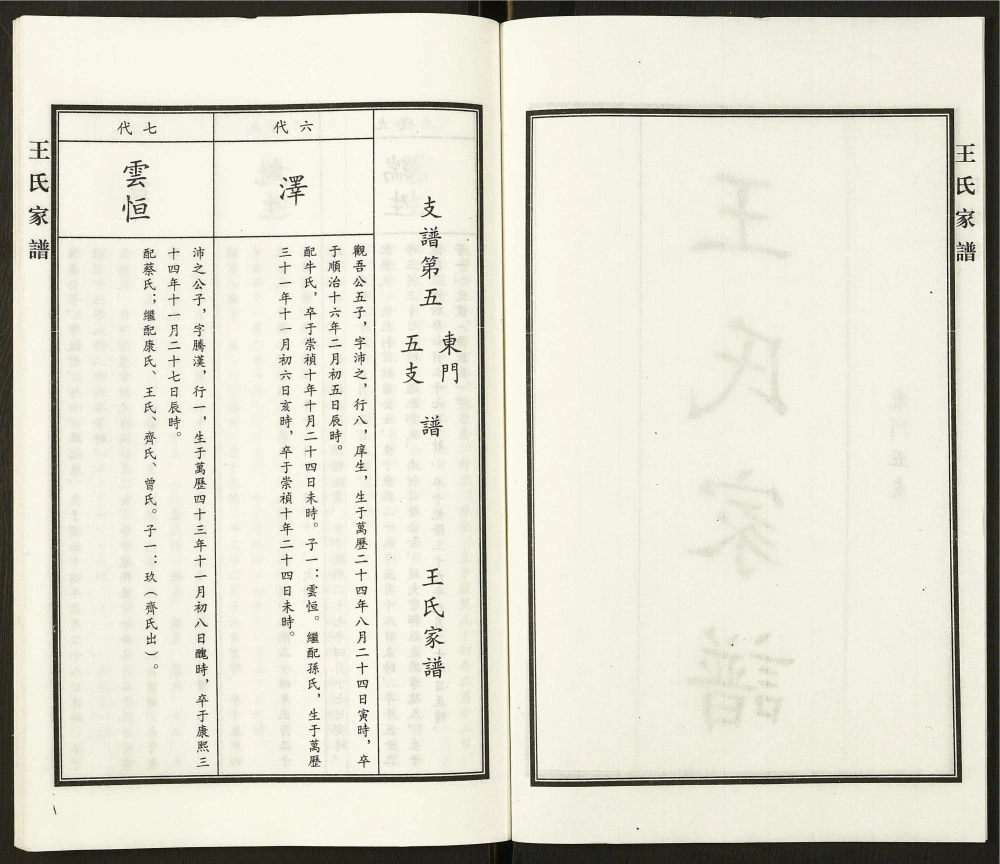 王氏家譜
支譜第五 東門五支 譜 王氏家譜
六代
澤
觀吾公五子，字沛之，行八，庠生，生于萬歷二十四年八月二十四日寅時，卒
于順治十六年二月初五日辰時。
配牛氏，卒于崇禎十年十月二十四日未時。子一：雲恒。繼配孫氏，生于萬歷
三十一年十一月初六日亥時，卒于崇禎十年二十四日未時。
七代
雲恒
沛之公子，字騰漢，行一，生于萬歷四十三年十一月初八日醜時，卒于康熙三
十四年十一月二十七日辰時。
配蔡氏；繼配康氏、王氏、齊氏、曾氏。子一：玖（齊氏出）。
王氏家譜